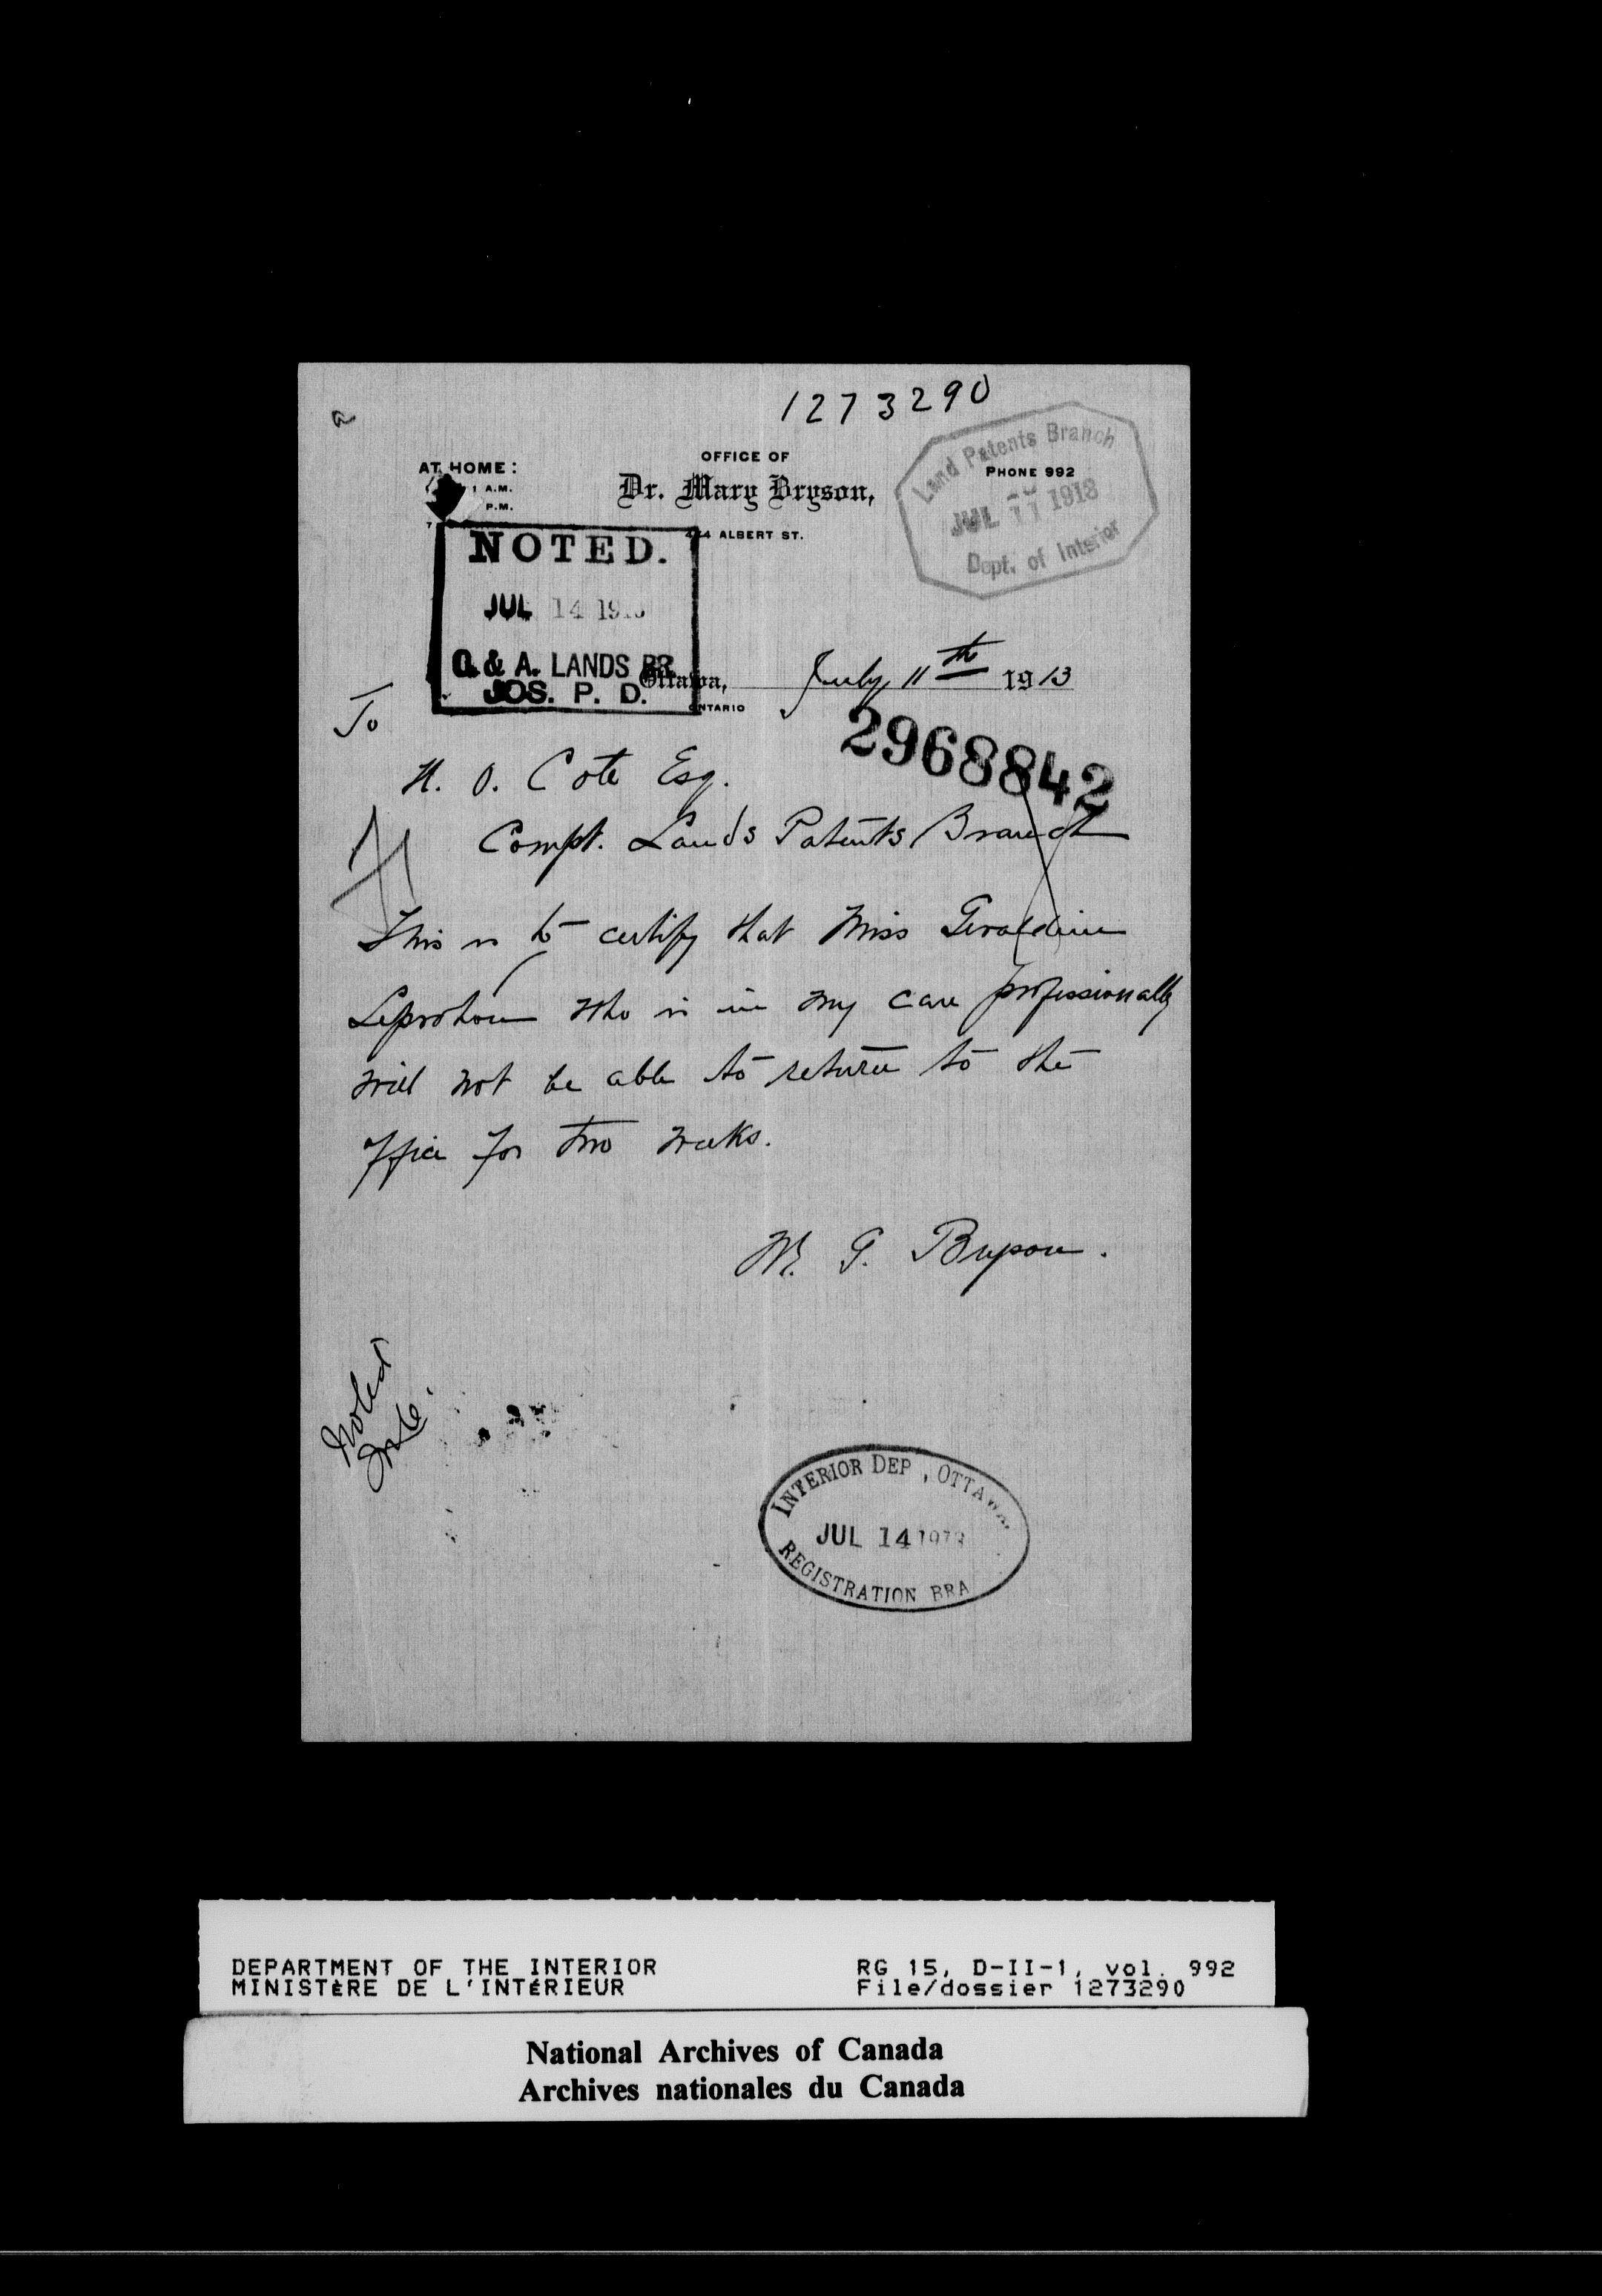 1273290
a
OFFICE OF
AT HOME:
PHONE 992
Dr. Mary Bryson,
A.M.
P.M.
7
ALBERT ST.
Land Patents Branch
JUL 11 1913
Dept. of Interior
NOTED.
JUL 14 19
O. & A. LANDS BR
JOS. P. D.
Ottawa, July 11th 1913
ONTARIO
2968842
To
H. O. Cote Esq.
Compt. Lands Patents Branch
This is to certify that Miss Geraldine
Leprohon who is in my care professionally
will not be able to return to the
office for two weeks.
M. G. Bryson.
Noted
INTERIOR DEP , OTTAWA
JUL 14 1913
REGISTRATION BRA
DEPARTMENT OF THE INTERIOR
MINISTÈRE DE L'INTÉRIEUR
RG 15, D-II-1, vol. 992
File/dossier 1273290
National Archives of Canada
Archives nationales du Canada